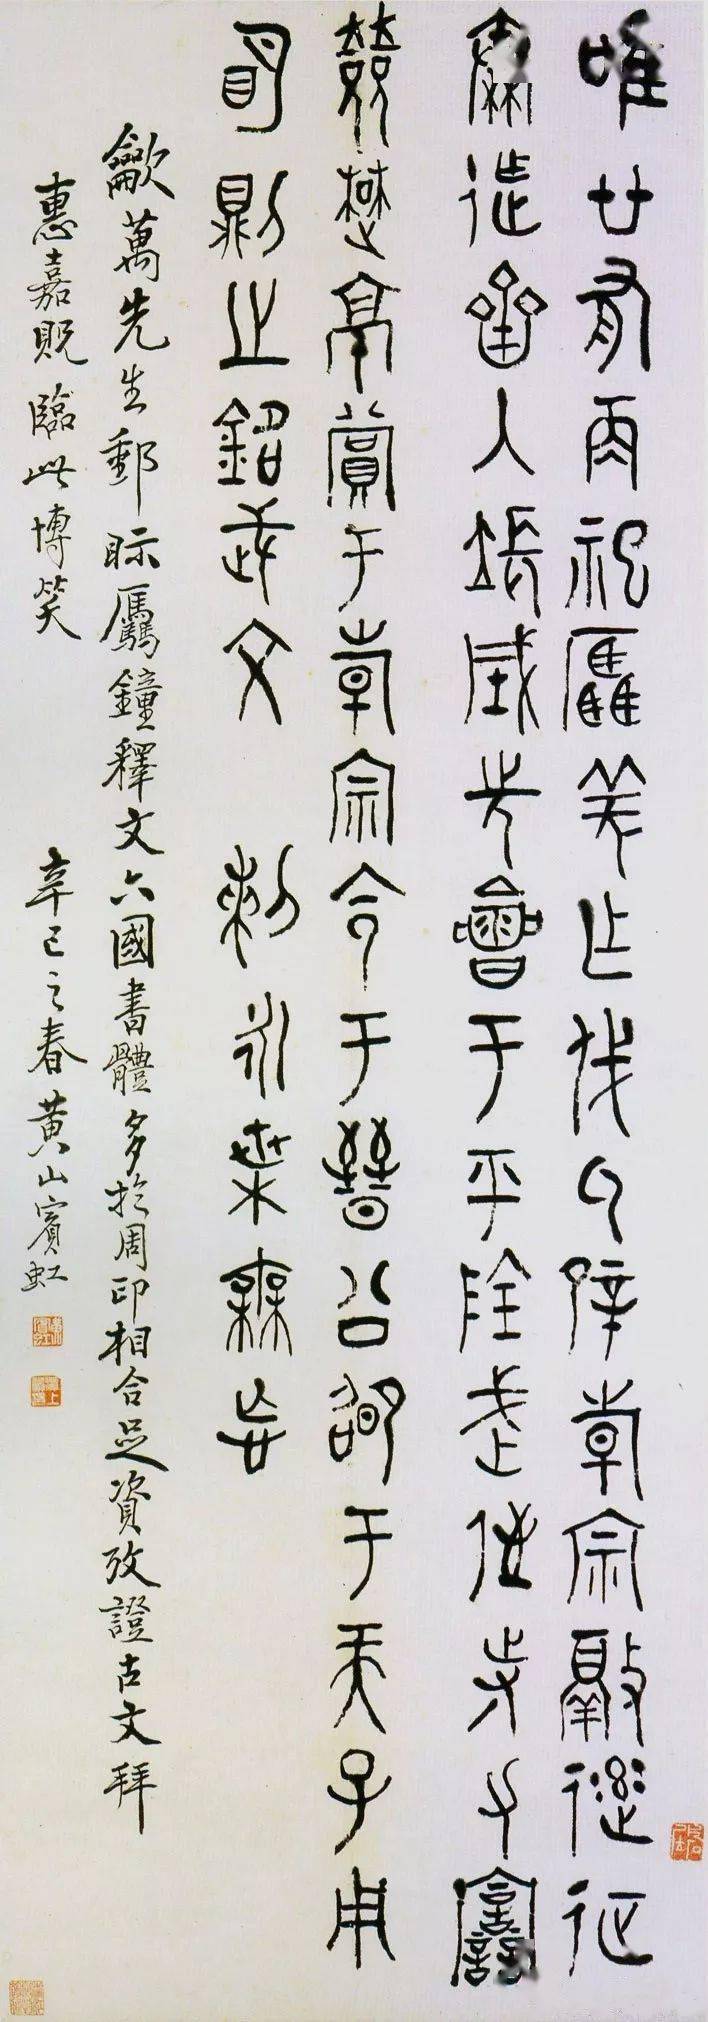 唯廿又再祀驫羌乍戎氒辟倝宗敲達征
秦迮齊入張城先會于平陰武侄寺力譶
敓楚京賞于倝宗令于晉公卲于天子用
明則之銘武文 剌永枼無忘
歙萬先生郵眎驫鐘釋文六國書體多於周印相合足資攷證古文拜
惠嘉貺臨此博笑 辛巳之春黃山賓虹